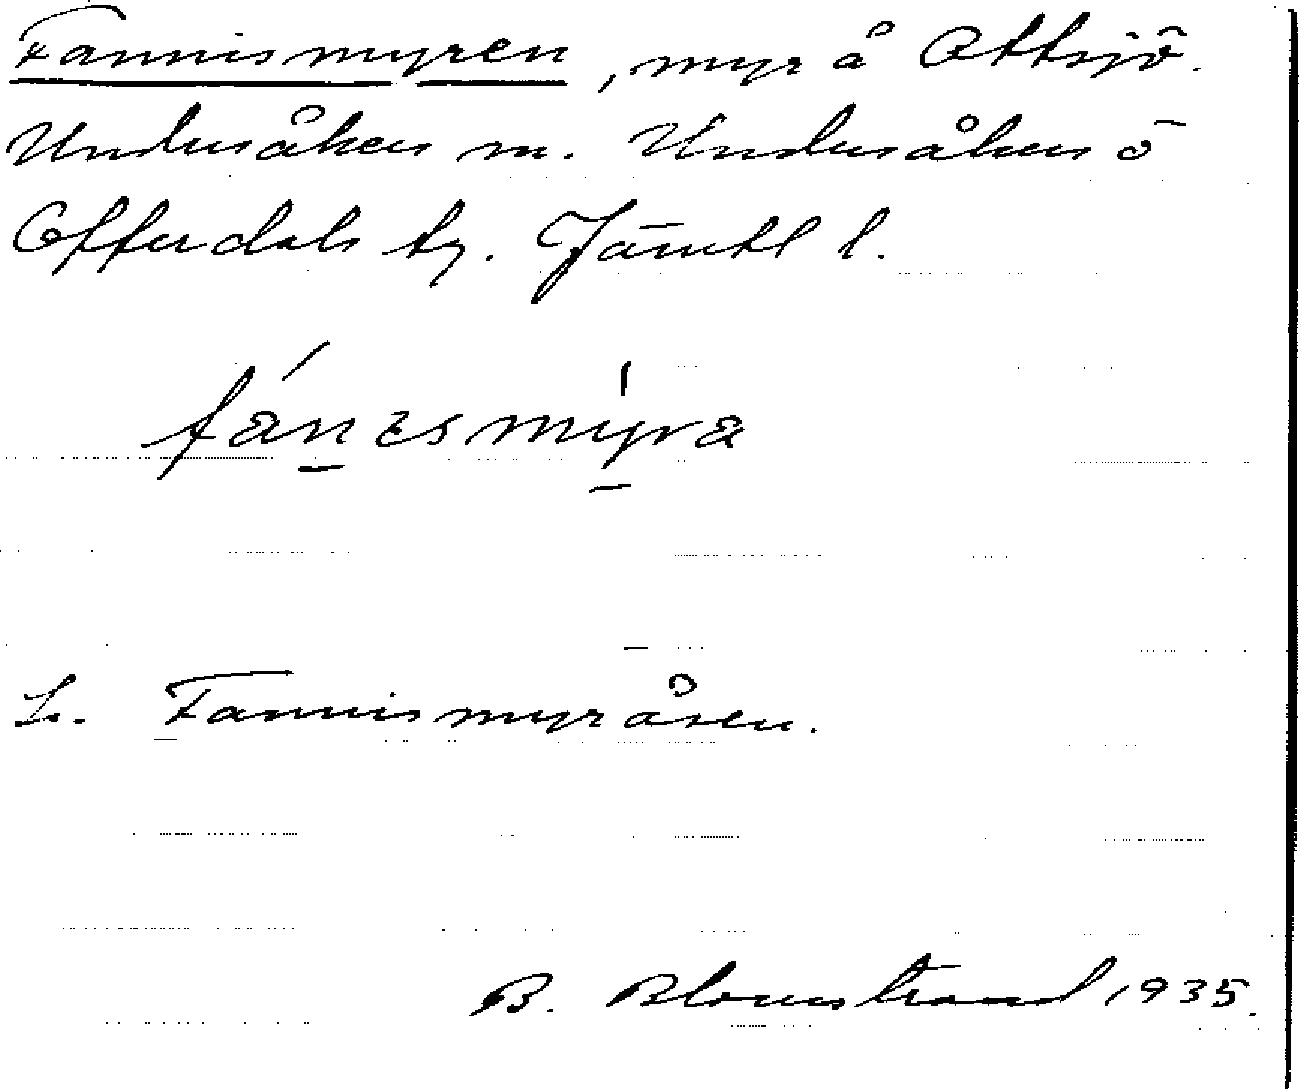 Fannismyren, myr å Ottsjö.
Undersåkers sn. Undersåkers o
Offerdals tg. Jämtl l.
fánɛsmyra
L. Fannismyråsen.
B. Blomstrand 1935.